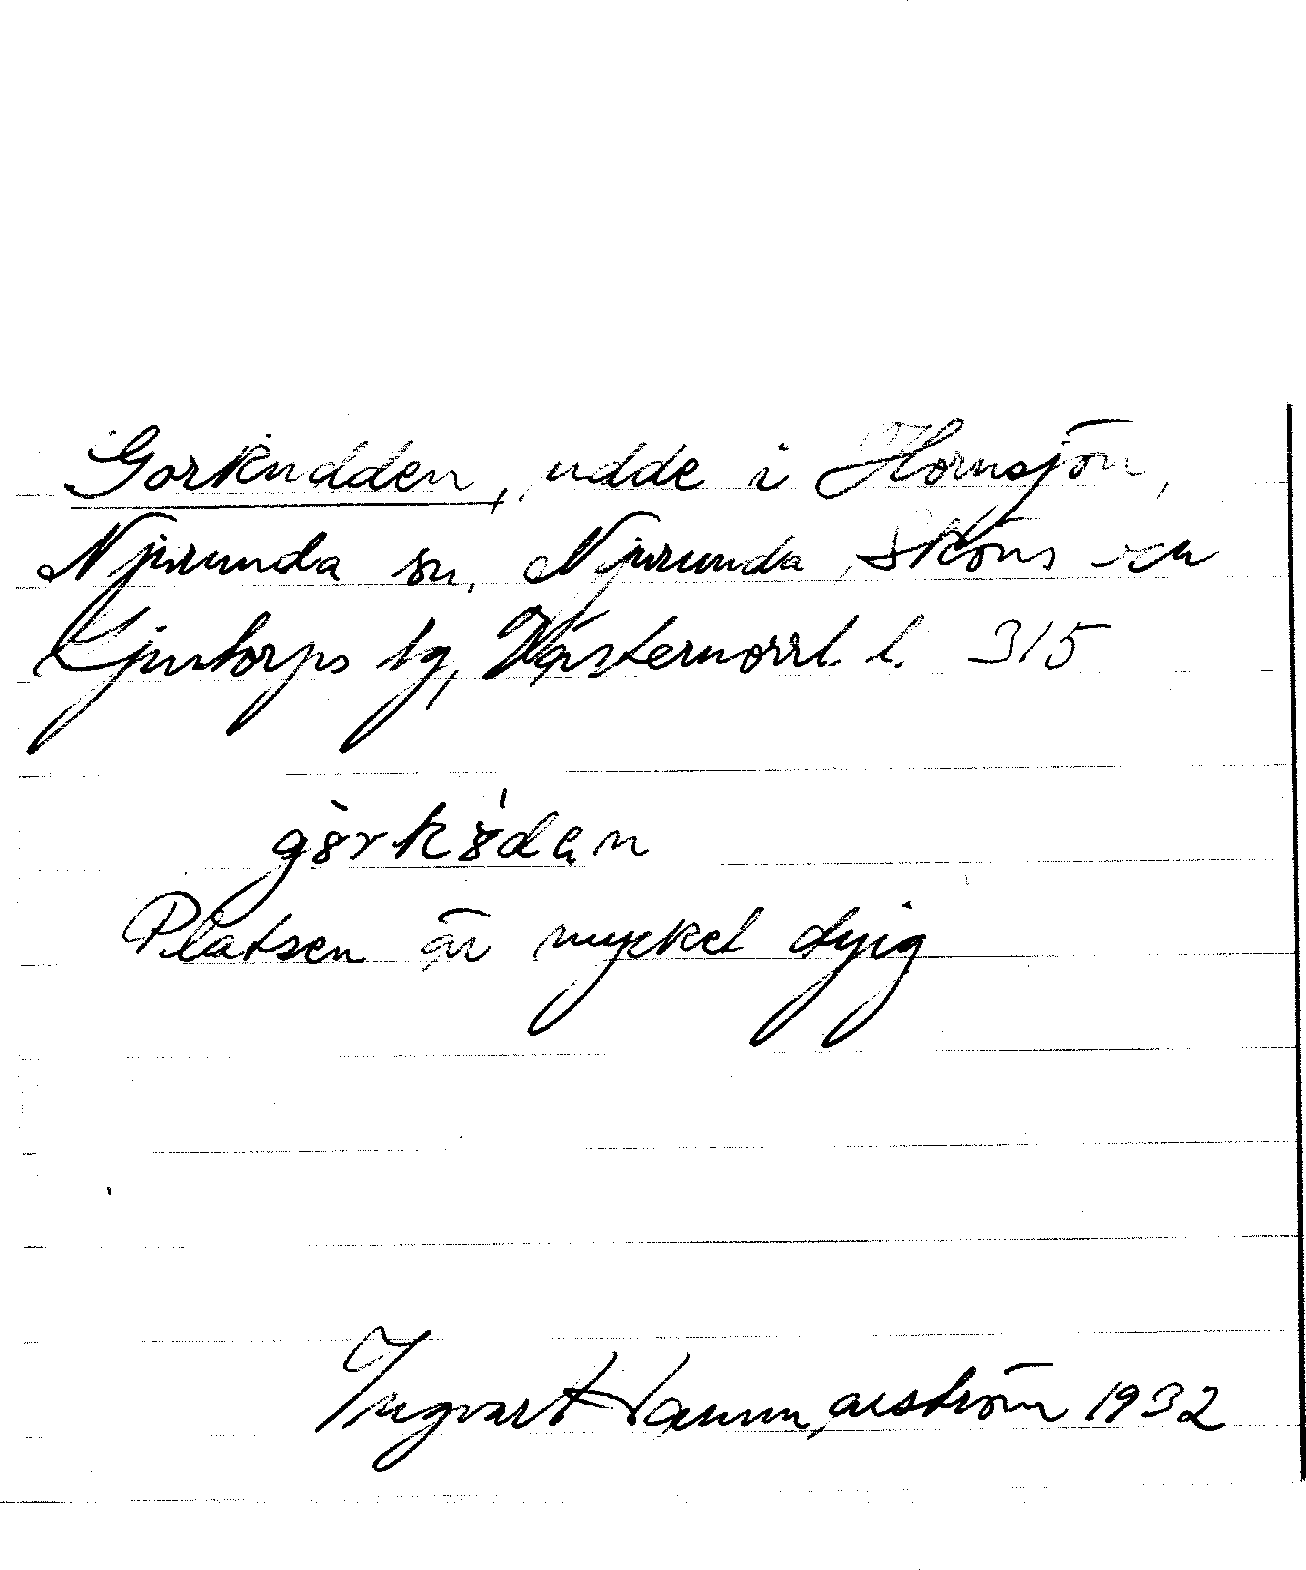 Gorkudden, udde i Hornsjön,
Njurunda sn, Njurunda, Sköns och
Ljustorps tg, Västernorrl. l. 315
gȯrkȯ́dan
Platsen är mycket dyig
Ingvart Hammarström 1932